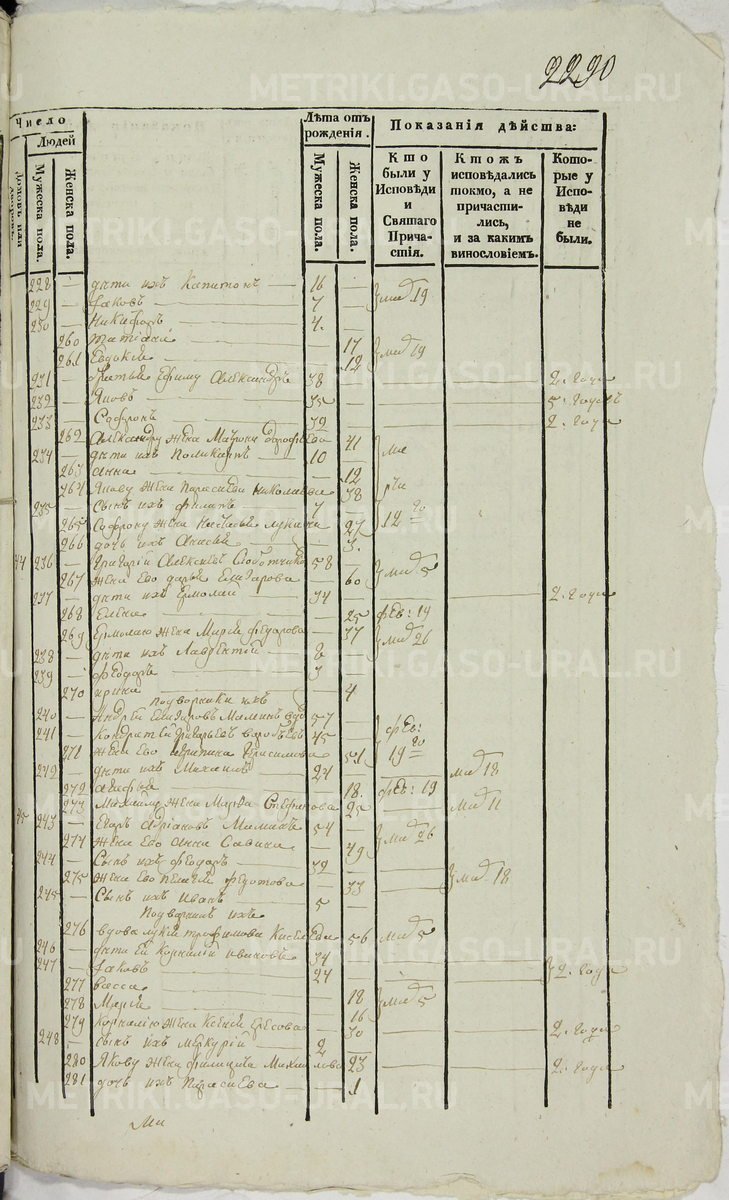 2290
Число
Людей
Домовъ или дворовъ.
Мужеска пола.
Женска пола.
Лѣта отъ рожденія.
Мужеска пола.
Женска пола.
Показанія дѣйства:
Кто были у Исповѣди и Святаго Причастія.
Ктожъ исповѣдались токмо, а не причастились, и за какимъ винословіемъ.
Которые у Исповѣди не были.
228 — дѣти ихъ Капитонъ 16 —
229 — Яковъ 7 — маі 19
230 — Никифоръ 4. —
260 Татіана — 17
261 Евдокія — 12 маі 19
231 — братья Ефиму Александръ 38 2. года
232 — Яковъ 35 5 годовъ
233 — Софронъ 32 2. года
262 Александру жена Матрона Дорофѣева 41
234 — дѣти ихъ Поликарпъ 10 — маі
263 Анна — 12
264 Якову жена Параскева Николаева 38
235 — сынъ ихъ Филипъ 7
265 Софрону жена Настасья Лукина 27 12
266 дочь ихъ Анисья 3.
44 236 — Григорій Алексѣевъ 58
267 жена Ево Дарья Елизарова 60 маі 5
237 — дѣти ихъ Ермолай 34 2. года
268 Елена 25 фев: 19
269 Ермолаю жена Марія Федорова — 37 маі 26
238 — дѣти ихъ Лаврентій 8
239 — Феодоръ 3
270 Ирина 4
подворники ихъ
240 — Андрей Елизаровъ Маминъ вдов 57
241 — Кондратій Григорьевъ Воробьевъ 45 — фев:
271 жена Ево Агрипина Герасимова 51 19
242 — дѣти ихъ Михаилъ 21 маі 18
272 Агафья 18. фев: 19
273 Михаилу жена Марфа Стефанова 25 маі 11
45 243 — Егоръ Адріановъ Маминъ 54
274 жена Ево Анна Савина 49 маі 26
244 — Сынъ ихъ Феодоръ 32
275 жена Ево Пелагія Федотова 33 маі 18
245 — Сынъ ихъ Иванъ 5
Подворники ихъ
276 вдова Лукія Трофимова Киселева 56 маі 5
246 — дѣти Ей Корнилій Ивановы 34
247 — Яковъ 24 2. года
277 Васса 18
278 Марія 16 маі 5
279 Корнилію жена Ксенія 30 2. года
248 — сынъ ихъ Меркурій 2
280 Якову жена Филицата Михайлова 23 2. года
281 дочь ихъ Параскева 1
METRIKI.GASO-URAL.RU